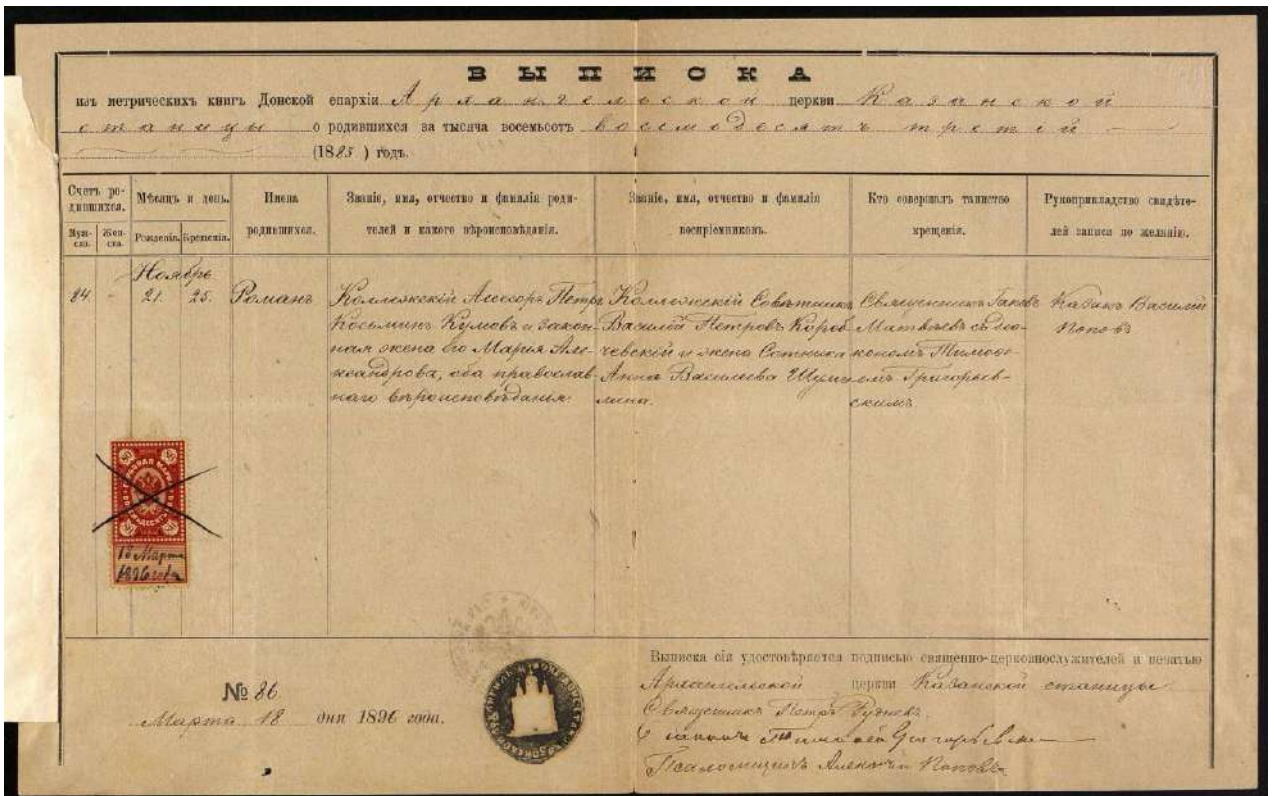 ВЫПИСКА
изъ метрическихъ книгъ Донской епархіи Архангельской церкви Казанской
станицы о родившихся за тысяча восемьсотъ восемьдесятъ третій
(1883) годъ.
Счетъ родившихся.
Мужеска. Женска.
Мѣсяцъ и день.
Рожденія. Крещенія.
Имена родившихся.
Званіе, имя, отчество и фамилія родителей и какого вѣроисповѣданія.
Званіе, имя, отчество и фамилія воспріемниковъ.
Кто совершалъ таинство крещенія.
Рукоприкладство свидѣтелей записи по желанію.
Ноябрь
84. - 21. 25. Романъ
Коллежскій Ассесоръ Петръ
Косьминъ Кумовъ и закон-
ная жена его Марія Але-
ксандрова, оба православ-
наго вѣроисповѣданья.
Коллежскій Совѣтникъ
Василій Петровъ
и жена Сотника
Анна Васильева
Священникъ Іаковъ
Матвѣевъ съ діа-
кономъ Тимоѳе-
емъ Григорьев-
скимъ.
Казакъ Василій
Поповъ
80 80
18 Марта
1896 года
№ 86
Марта 18 дня 1896 года.
Выписка сія удостовѣряется подписью священно-церковнослужителей и печатью
Архангельской церкви Казанской станицы
Священникъ Петръ Рудневъ.
Діаконъ Тимоѳей
Псаломщикъ Алексѣй Поповъ